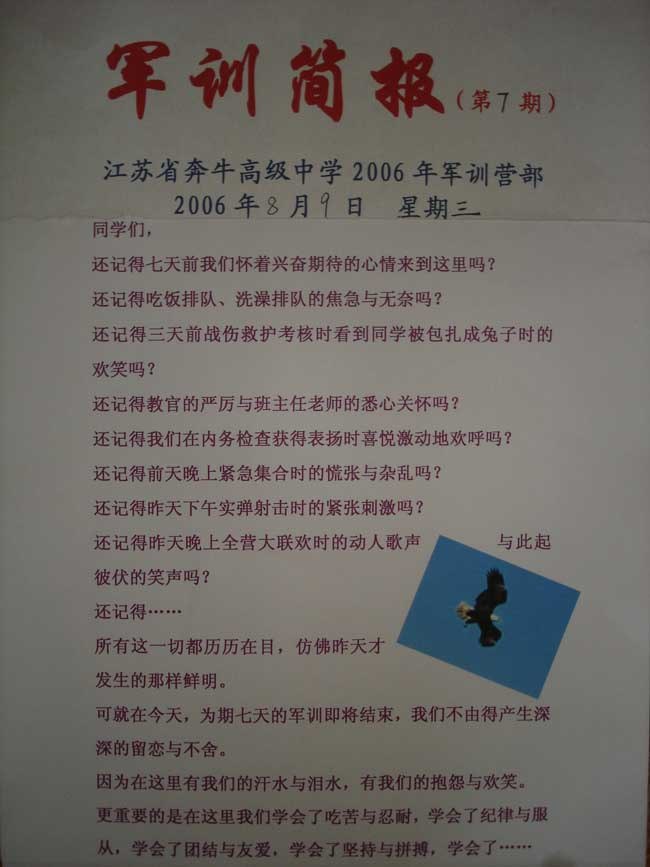 军训简报（第7期）
江苏省奔牛高级中学2006年军训营部
2006年8月9日 星期三
同学们，
还记得七天前我们怀着兴奋期待的心情来到这里吗？
还记得吃饭排队、洗澡排队的焦急与无奈吗？
还记得三天前战伤救护考核时看到同学被包扎成兔子时的
欢笑吗？
还记得教官的严厉与班主任老师的悉心关怀吗？
还记得我们在内务检查获得表扬时喜悦激动地欢呼吗？
还记得前天晚上紧急集合时的慌张与杂乱吗？
还记得昨天下午实弹射击时的紧张刺激吗？
还记得昨天晚上全营大联欢时的动人歌声 与此起
彼伏的笑声吗？
还记得……
所有这一切都历历在目，仿佛昨天才
发生的那样鲜明。
可就在今天，为期七天的军训即将结束，我们不由得产生深
深的留恋与不舍。
因为在这里有我们的汗水与泪水，有我们的抱怨与欢笑。
更重要的是在这里我们学会了吃苦与忍耐，学会了纪律与服
从，学会了团结与友爱，学会了坚持与拼搏，学会了……